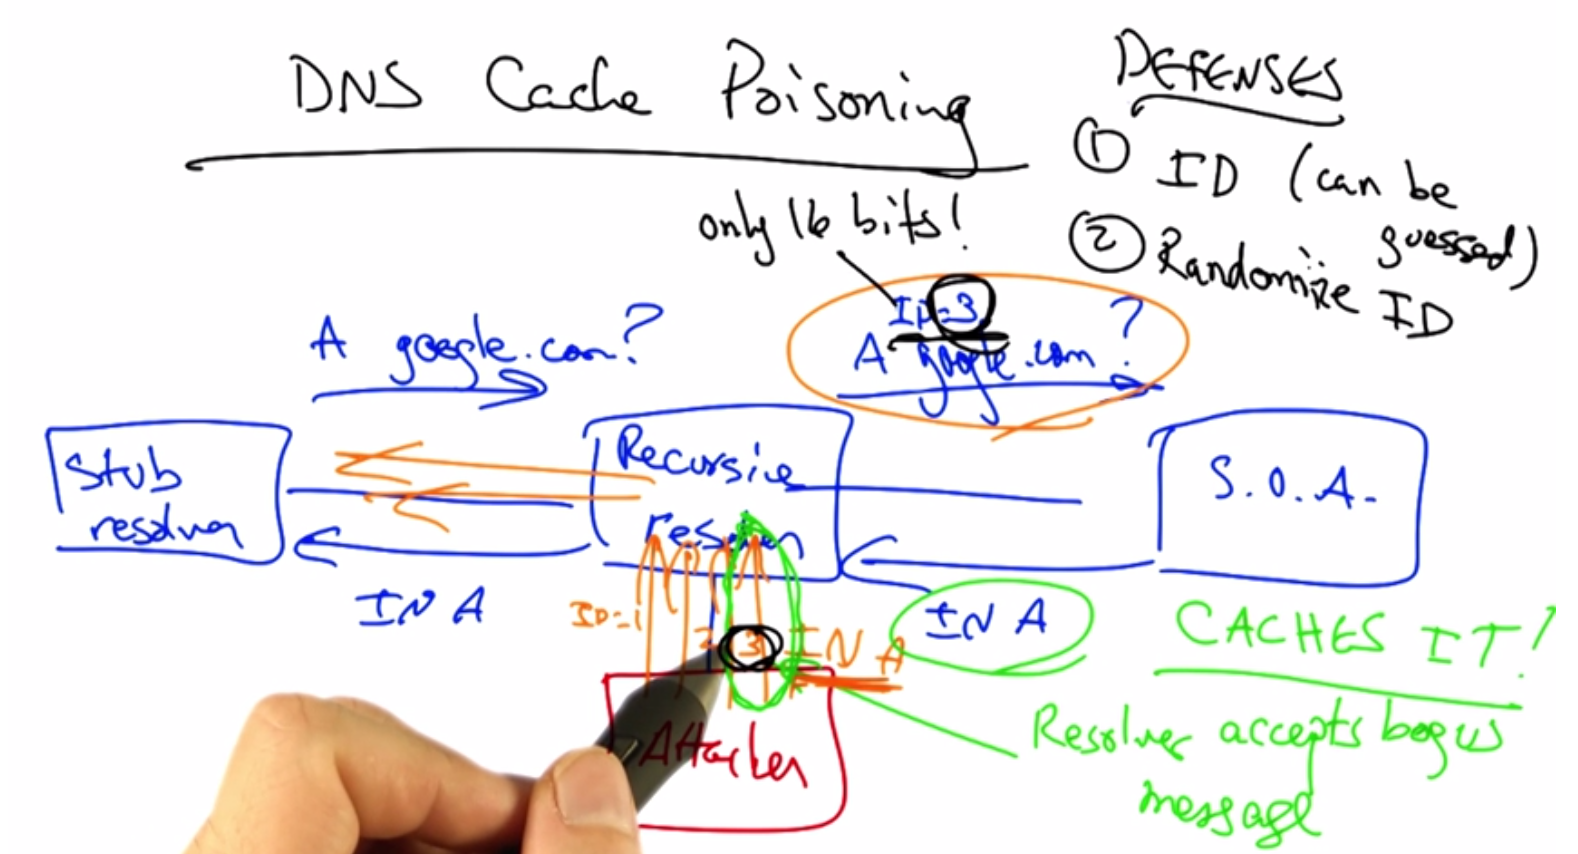 DNS Cache Poisoning
DEFENSES
① ID (can be
guessed)
② Randomize
ID
only 16 bits!
ID=3
A google.com?
A google.com?
Stub
resolver
Recursive
resolver
S.O.A.
IN A
ID=1
2
3
IN A
IN A
CACHES IT!
Attacker
Resolver accepts bogus
message